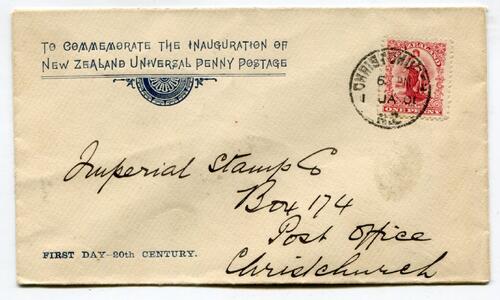 TO COMMEMORATE THE INAUGURATION OF
NEW ZEALAND UNIVERSAL PENNY POSTAGE
ZEALAND
ONE PENNY
CHRISTCHURCH
1 JA 01
N.Z
Imperial Stamp Co
Box 174
Post Office
Christchurch
FIRST DAY–20th CENTURY.